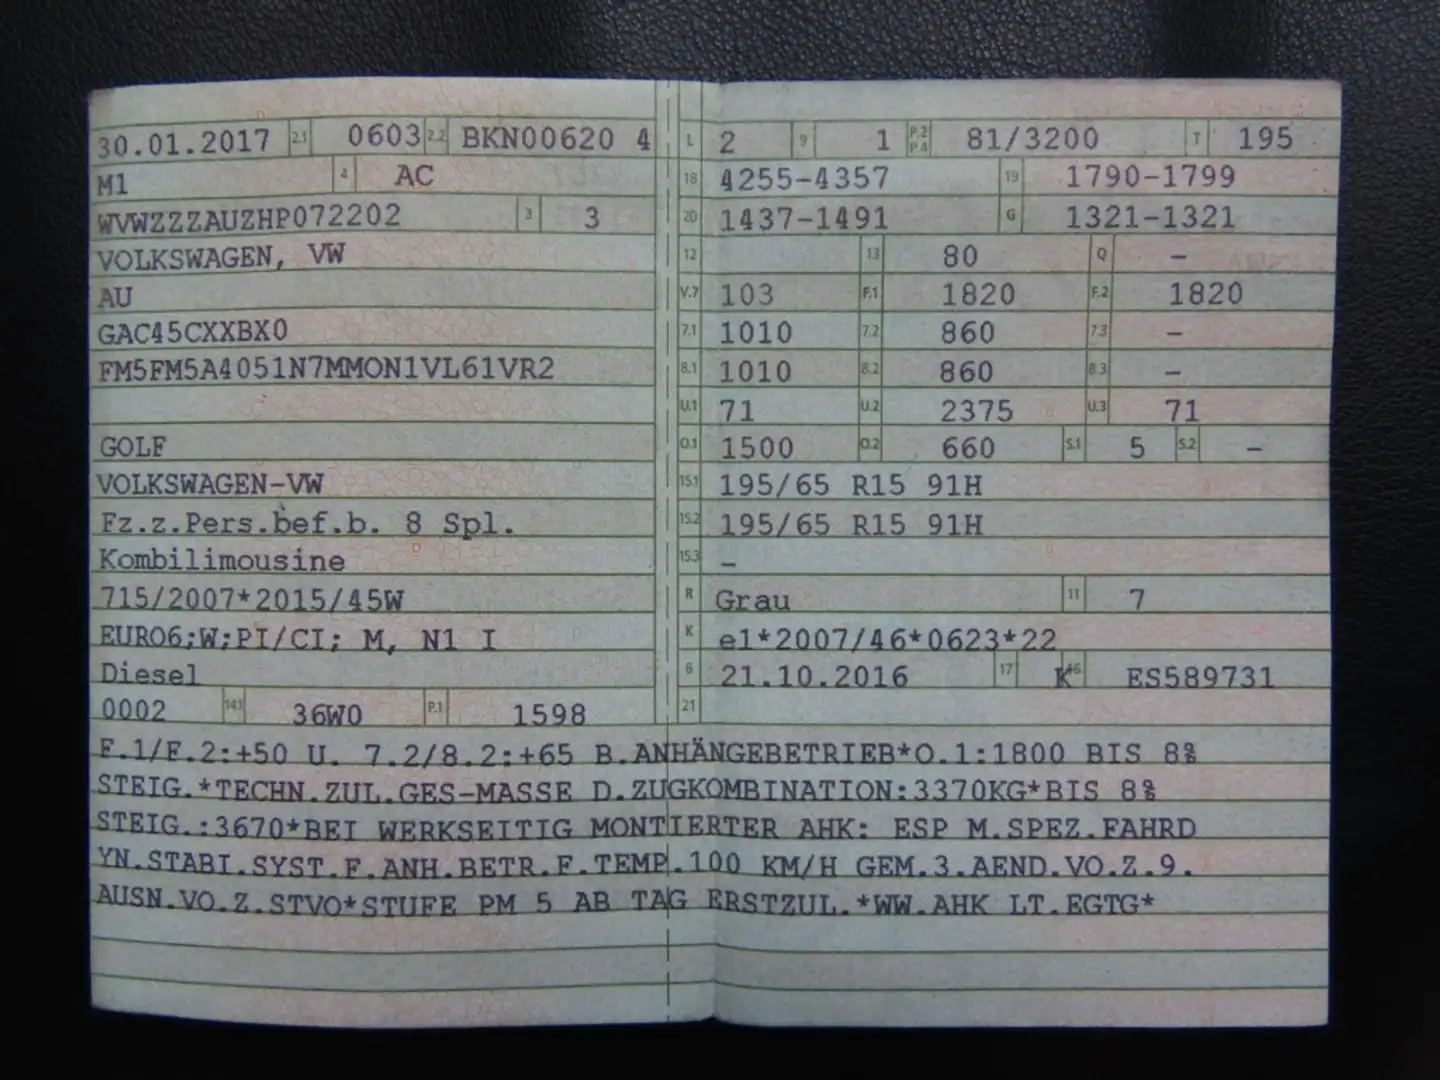 30.01.2017 2.1 0603 2.2 BKN00620 4
M1 4 AC
WVWZZZAUZHP072202 3 3
VOLKSWAGEN, VW
AU
GAC45CXXBX0
FM5FM5A4051N7MMON1VL61VR2
GOLF
VOLKSWAGEN-VW
Fz.z.Pers.bef.b. 8 Spl.
Kombilimousine
715/2007*2015/45W
EURO6;W;PI/CI; M, N1 I
Diesel
0002 14.1 36W0 P.1 1598
L 2 9 1 P.2 P.4 81/3200 T 195
18 4255-4357 19 1790-1799
20 1437-1491 G 1321-1321
12 13 80 Q -
V.7 103 F.1 1820 F.2 1820
7.1 1010 7.2 860 7.3 -
8.1 1010 8.2 860 8.3 -
U.1 71 U.2 2375 U.3 71
O.1 1500 O.2 660 S.1 5 S.2 -
15.1 195/65 R15 91H
15.2 195/65 R15 91H
15.3 -
R Grau 11 7
K e1*2007/46*0623*22
6 21.10.2016 17 K 16 ES589731
21
F.1/F.2:+50 U. 7.2/8.2:+65 B.ANHÄNGEBETRIEB*O.1:1800 BIS 8%
STEIG.*TECHN.ZUL.GES-MASSE D.ZUGKOMBINATION:3370KG*BIS 8%
STEIG.:3670*BEI WERKSEITIG MONTIERTER AHK: ESP M.SPEZ.FAHRD
YN.STABI.SYST.F.ANH.BETR.F.TEMP.100 KM/H GEM.3.AEND.VO.Z.9.
AUSN.VO.Z.STVO*STUFE PM 5 AB TAG ERSTZUL.*WW.AHK LT.EGTG*